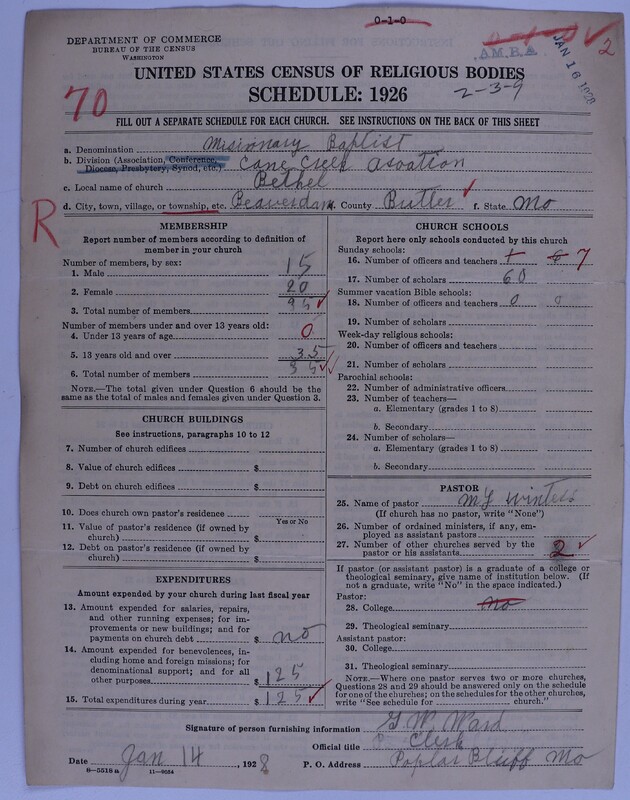 0-1-0
DEPARTMENT OF COMMERCE
BUREAU OF THE CENSUS
WASHINGTON
A.M.B.A.
2
JAN 16 1928
UNITED STATES CENSUS OF RELIGIOUS BODIES
SCHEDULE: 1926
2-3-9
70
FILL OUT A SEPARATE SCHEDULE FOR EACH CHURCH. SEE INSTRUCTIONS ON THE BACK OF THIS SHEET
a. Denomination Missionary Baptist
b. Division (Association, Conference, Diocese, Presbytery, Synod, etc.) Cane Creek Asoation
c. Local name of church Bethel
d. City, town, village, or township, etc. Beaverdam e. County Butler f. State Mo
R
MEMBERSHIP
Report number of members according to definition of
member in your church
Number of members, by sex:
1. Male 15
2. Female 20
3. Total number of members
Number of members under and over 13 years old:
4. Under 13 years of age 0
5. 13 years old and over 35
6. Total number of members 35
NOTE.—The total given under Question 6 should be the
same as the total of males and females given under Question 3.
CHURCH BUILDINGS
See instructions, paragraphs 10 to 12
7. Number of church edifices
8. Value of church edifices $
9. Debt on church edifices $
10. Does church own pastor's residence
Yes or No
11. Value of pastor's residence (if owned by
church) $
12. Debt on pastor's residence (if owned by
church) $
EXPENDITURES
Amount expended by your church during last fiscal year
13. Amount expended for salaries, repairs,
and other running expenses; for im-
provements or new buildings; and for
payments on church debt $ no
14. Amount expended for benevolences, in-
cluding home and foreign missions; for
denominational support; and for all
other purposes $ 125
15. Total expenditures during year $ 125
CHURCH SCHOOLS
Report here only schools conducted by this church
Sunday schools:
16. Number of officers and teachers 7
17. Number of scholars 60
Summer vacation Bible schools:
18. Number of officers and teachers 0 0
19. Number of scholars
Week-day religious schools:
20. Number of officers and teachers
21. Number of scholars
Parochial schools:
22. Number of administrative officers
23. Number of teachers—
a. Elementary (grades 1 to 8)
b. Secondary
24. Number of scholars—
a. Elementary (grades 1 to 8)
b. Secondary
PASTOR
25. Name of pastor
(If church has no pastor, write "None")
26. Number of ordained ministers, if any, em-
ployed as assistant pastors
27. Number of other churches served by the
pastor or his assistants 2
If pastor (or assistant pastor) is a graduate of a college or
theological seminary, give name of institution below. (If
not a graduate, write "No" in the space indicated.)
Pastor:
28. College no
29. Theological seminary
Assistant pastor:
30. College
31. Theological seminary
NOTE.—Where one pastor serves two or more churches,
Questions 28 and 29 should be answered only on the schedule
for one of the churches; on the schedules for the other churches,
write "See schedule for church."
Signature of person furnishing information G. W. Ward
Official title Clerk
Date Jan 14, 1928 P. O. Address Poplar Bluff Mo
8—5518 a 11—9034